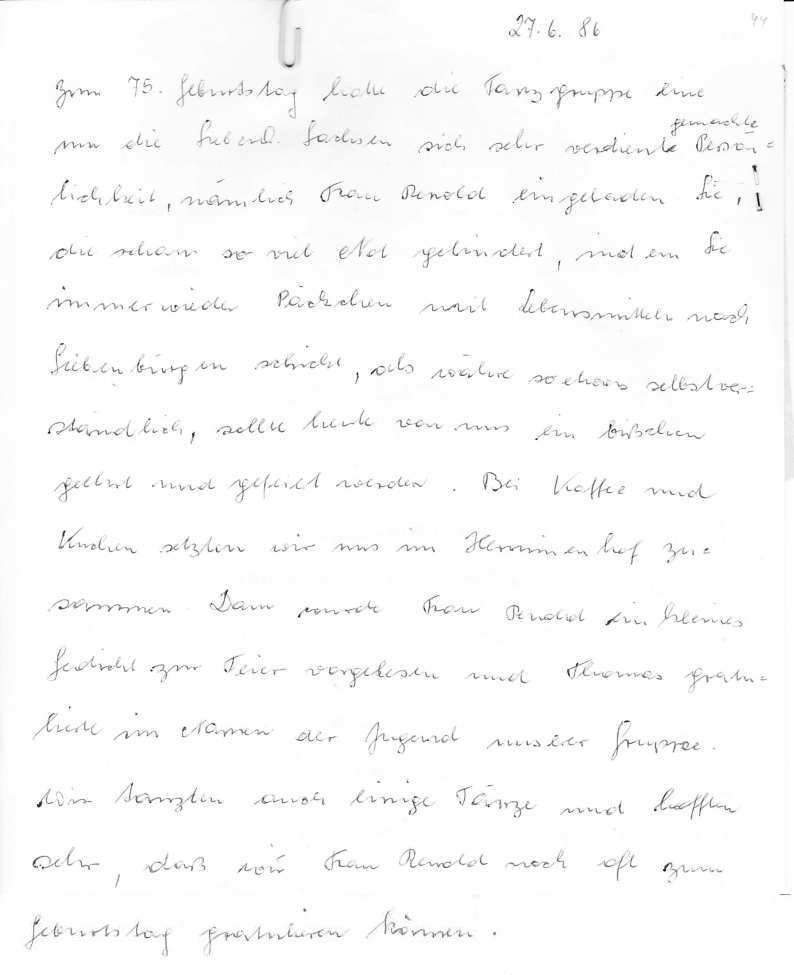 27.6.86
44
Zum 75. Geburtstag hatte die Tanzgruppe eine
um die Siebenb. Sachsen sich sehr verdient gemachte Persön=
lichkeit, nämlich Frau Renold eingeladen. Sie, !
die schon so viel Not gelindert, indem Sie
immer wieder Päckchen mit Lebensmitteln nach
Siebenbürgen schickt, als währe so etwas selbstver=
ständlich, sollte heute von uns ein bißchen
geehrt und gefeiert werden. Bei Kaffee und
Kuchen setzten wir uns im Hemminenhof zu=
sammen. Dann wurde Frau Renold ein kleines
Gedicht zur Feier vorgelesen und Thomas gratu=
lierte im Namen der Jugend unserer Gruppe.
Wir tanzten auch einige Tänze und hofften
sehr, daß wir Frau Renold noch oft zum
Geburtstag gratulieren können.